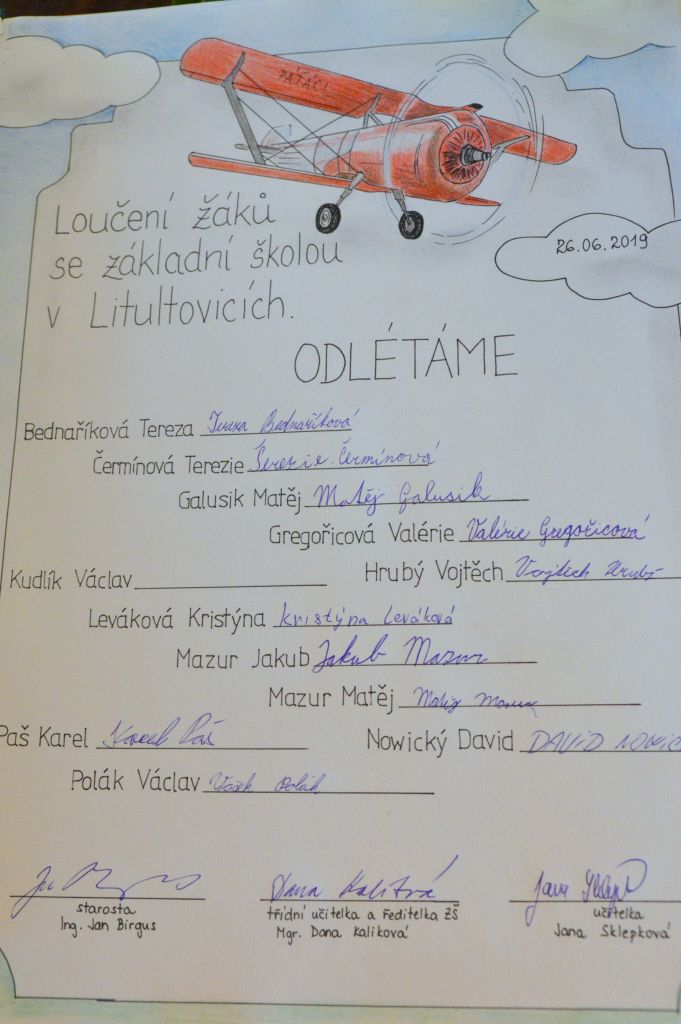 PAŤÁCI
Loučení žáků
se základní školou
v Litultovicích.
26.06.2019
ODLÉTÁME
Bednaříková Tereza Tereza Bednaříková
Čermínová Terezie Terezie Čermínová
Galusik Matěj Matěj Galusik
Gregořicová Valérie Valérie Gregořicová
Hrubý Vojtěch Vojtěch Hrubý
Kudlík Václav
Leváková Kristýna Kristýna Leváková
Mazur Jakub Jakub Mazur
Mazur Matěj Matěj Mazur
Paš Karel Karel Paš
Nowický David DAVID NOWIC
Polák Václav Vašek Polák
Dana Kaliková
Jana
starosta
Ing. Jan Birgus
třídní učitelka a ředitelka ZŠ
Mgr. Dana Kaliková
učitelka
Jana Sklepková